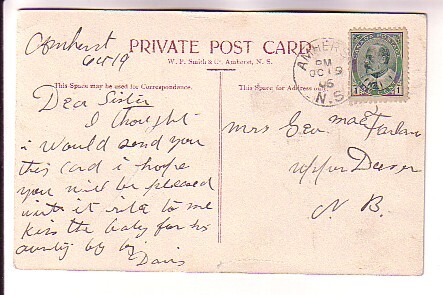 Amherst
Oct 19
PRIVATE POST CARD
W. P. Smith & Co. Amherst, N. S.
This Space may be used for Correspondence.
This Space for Address only
AMHERST
PM
OC 19
06
N.S.
1 1
Dear Sister
I thought
i would send you
this card i hope
you will be pleased
with it rite to me
kiss the baby for his
aunty by by
Davis
Mrs Geo MacFarlane
upper
N. B.